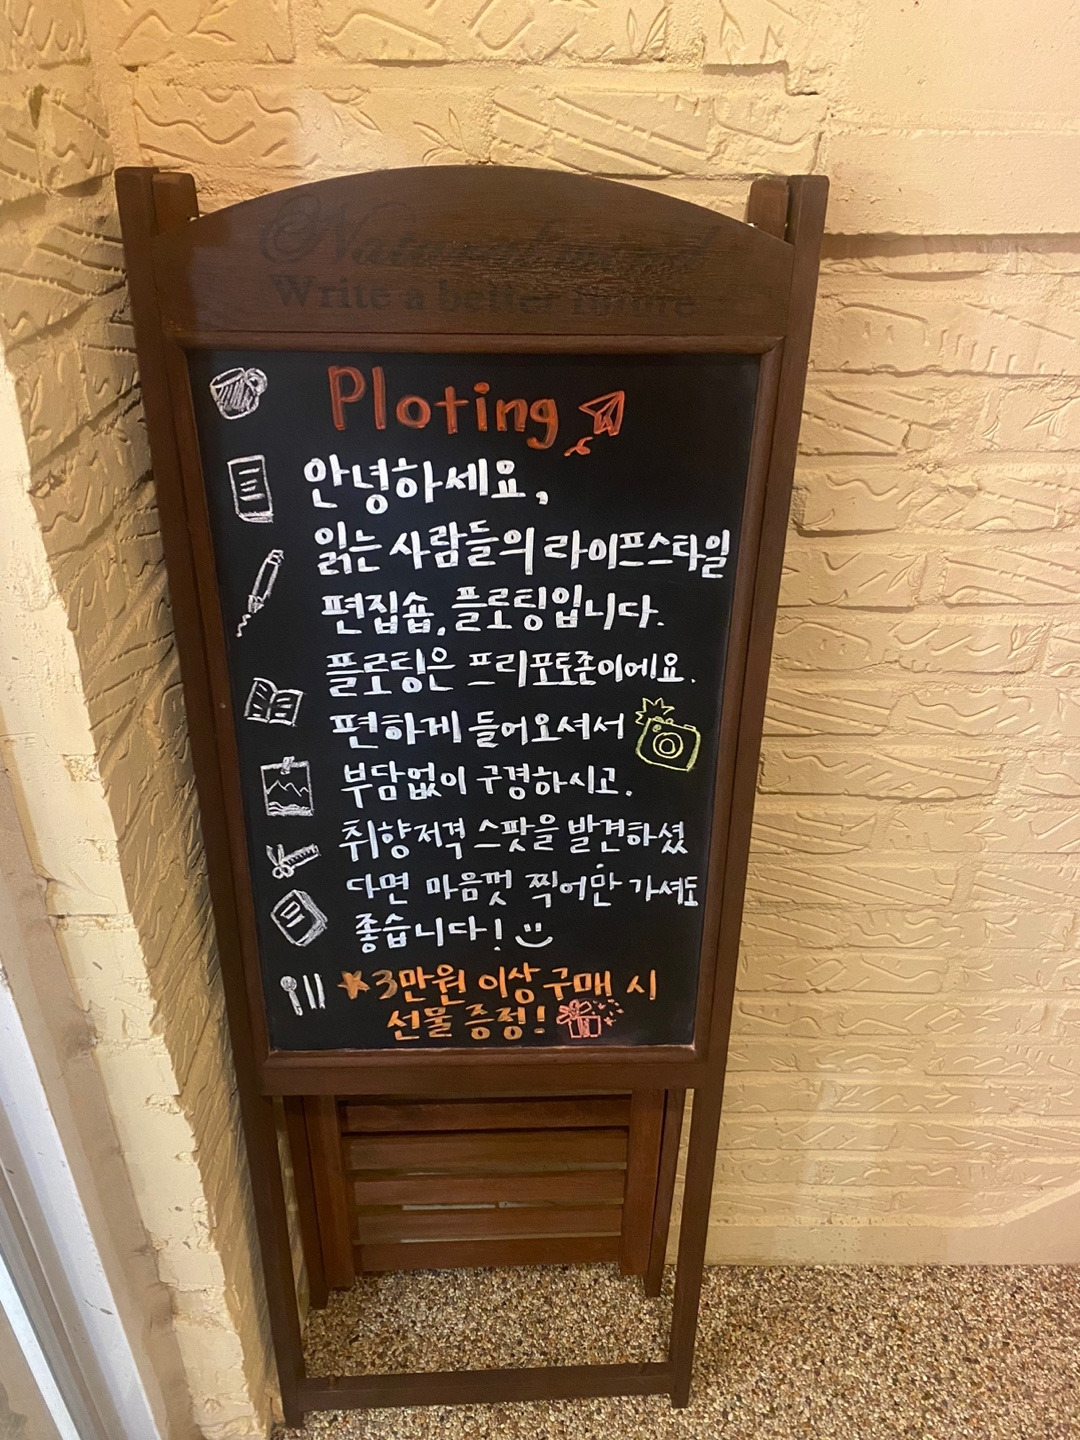 Write a better future
Ploting
안녕하세요,
읽는 사람들의 라이프스타일
편집숍, 플로팅입니다.
플로팅은 프리포토존이에요.
편하게 들어오셔서
부담없이 구경하시고.
취향저격 스팟을 발견하셨
다면 마음껏 찍어만 가셔도
좋습니다!
3만원 이상 구매 시
선물 증정!